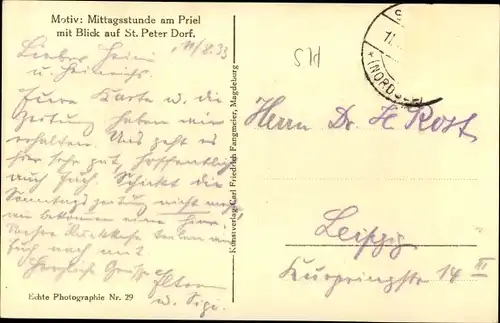 Motiv: Mittagsstunde am Priel
mit Blick auf St. Peter Dorf.
11/8.33
Lieber Heini
u. Heinrichs.
Eure Karte u. die
Zeitung haben wir
erhalten. Uns geht es
hier sehr gut, hoffentlich
auch Euch. Schickt die
Sonntagszeitung nicht mehr,
wir bekommen eine hier.
Rückkehr teilen wir
Euch noch mit
Herzliche Grüsse Eltern
u. Sigi.
Echte Photographie Nr. 29
Kunstverlag Carl Friedrich Fangmeier, Magdeburg
SH
11.
(NORDSEE)
Herrn Dr. H. Rost
Leipzig
Kurprinzstr 14 III